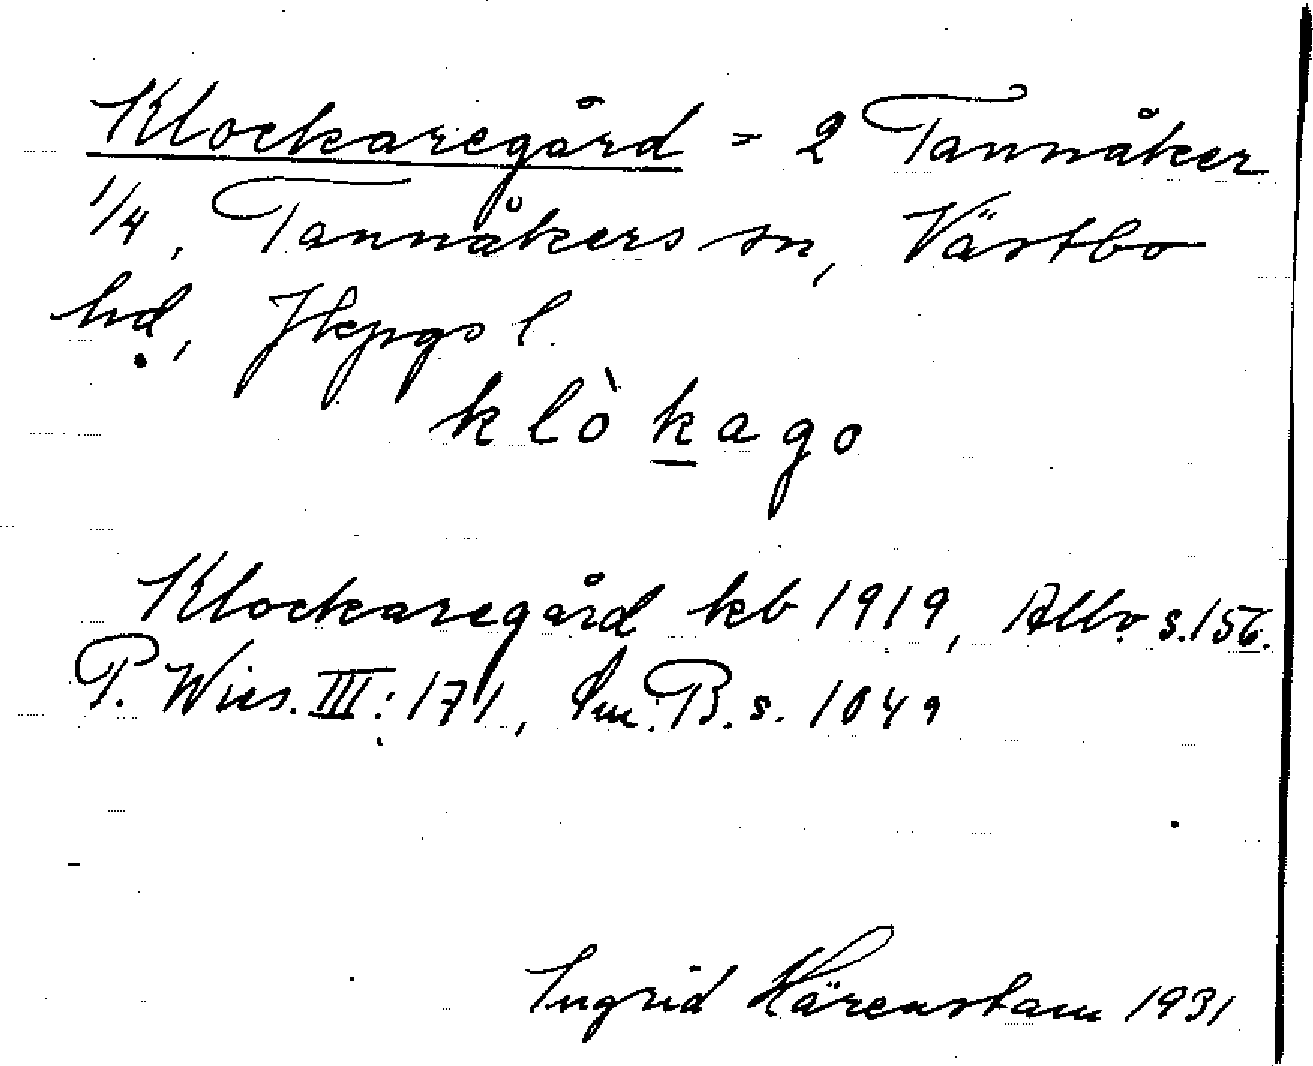 Klockaregård = 2 Tannåker
1/4, Tannåkers sn, Västbo
hd, Jkpgs l.
klò̀kago
Klockaregård kb 1919, Allbo s. 156.
P. Wies. III: 171, Sm. B. s. 1049
Ingrid Härenstam 1931